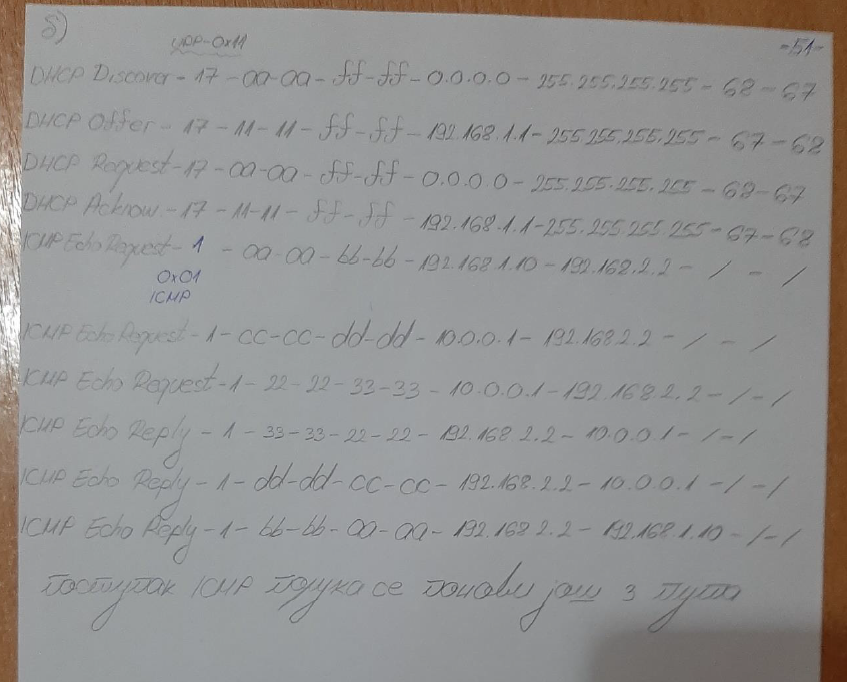 δ)
-51-
UDP-0x11
DHCP Discover - 17 - aa-aa - ff-ff - 0.0.0.0 - 255.255.255.255 - 68 - 67
DHCP Offer - 17 - 11-11 - ff-ff - 192.168.1.1 - 255.255.255.255 - 67 - 68
DHCP Request - 17 - aa-aa - ff-ff - 0.0.0.0 - 255.255.255.255 - 68 - 67
DHCP Acknow. - 17 - 11-11 - ff-ff - 192.168.1.1 - 255.255.255.255 - 67 - 68
ICMP Echo Request - 1 - aa-aa - bb-bb - 192.168.1.10 - 192.168.2.2 - / - /
0x01
ICMP
ICMP Echo Request - 1 - cc-cc - dd-dd - 10.0.0.1 - 192.168.2.2 - / - /
ICMP Echo Request - 1 - 22-22 - 33-33 - 10.0.0.1 - 192.168.2.2 - / - /
ICMP Echo Reply - 1 - 33-33 - 22-22 - 192.168.2.2 - 10.0.0.1 - / - /
ICMP Echo Reply - 1 - dd-dd - cc-cc - 192.168.2.2 - 10.0.0.1 - / - /
ICMP Echo Reply - 1 - bb-bb - aa-aa - 192.168.2.2 - 192.168.1.10 - / - /
поступак ICMP порука се понови још 3 пута